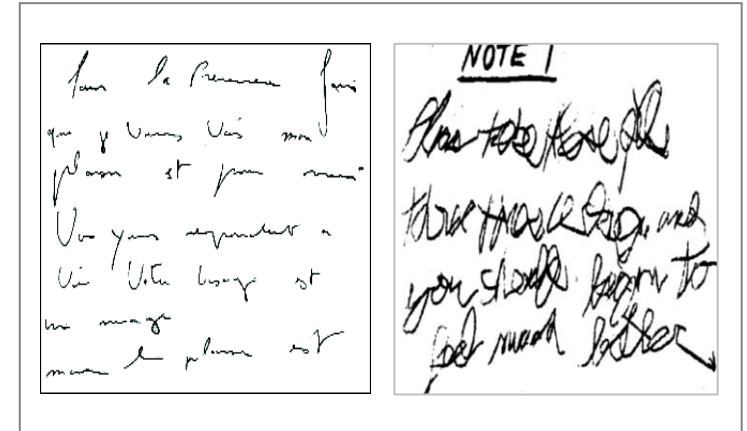 Pour la Première fois
que je Viens Vais mon
plaisir est pour moi
Vos yeux respondent a
Votre Visage est
un nuage
le plaisir est
NOTE 1
Please take these pills
three times a day, and
you should begin to
feel much better